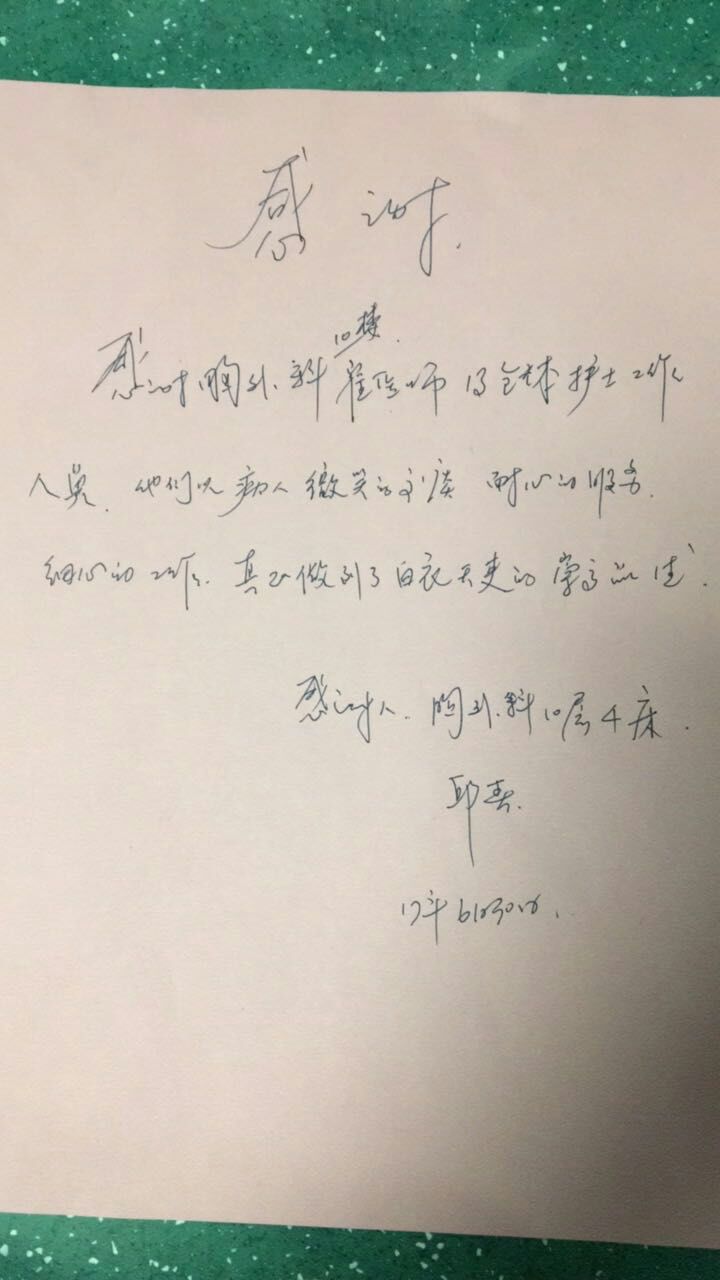 感谢
10楼
感谢胸外科崔医师及全体护士工作
人员。他们以病人微笑的交谈 耐心的服务.
细心的工作. 真正做到了白衣天使的崇高品德.
感谢人. 胸外科10层4床.
邱春.
17年6月30日.